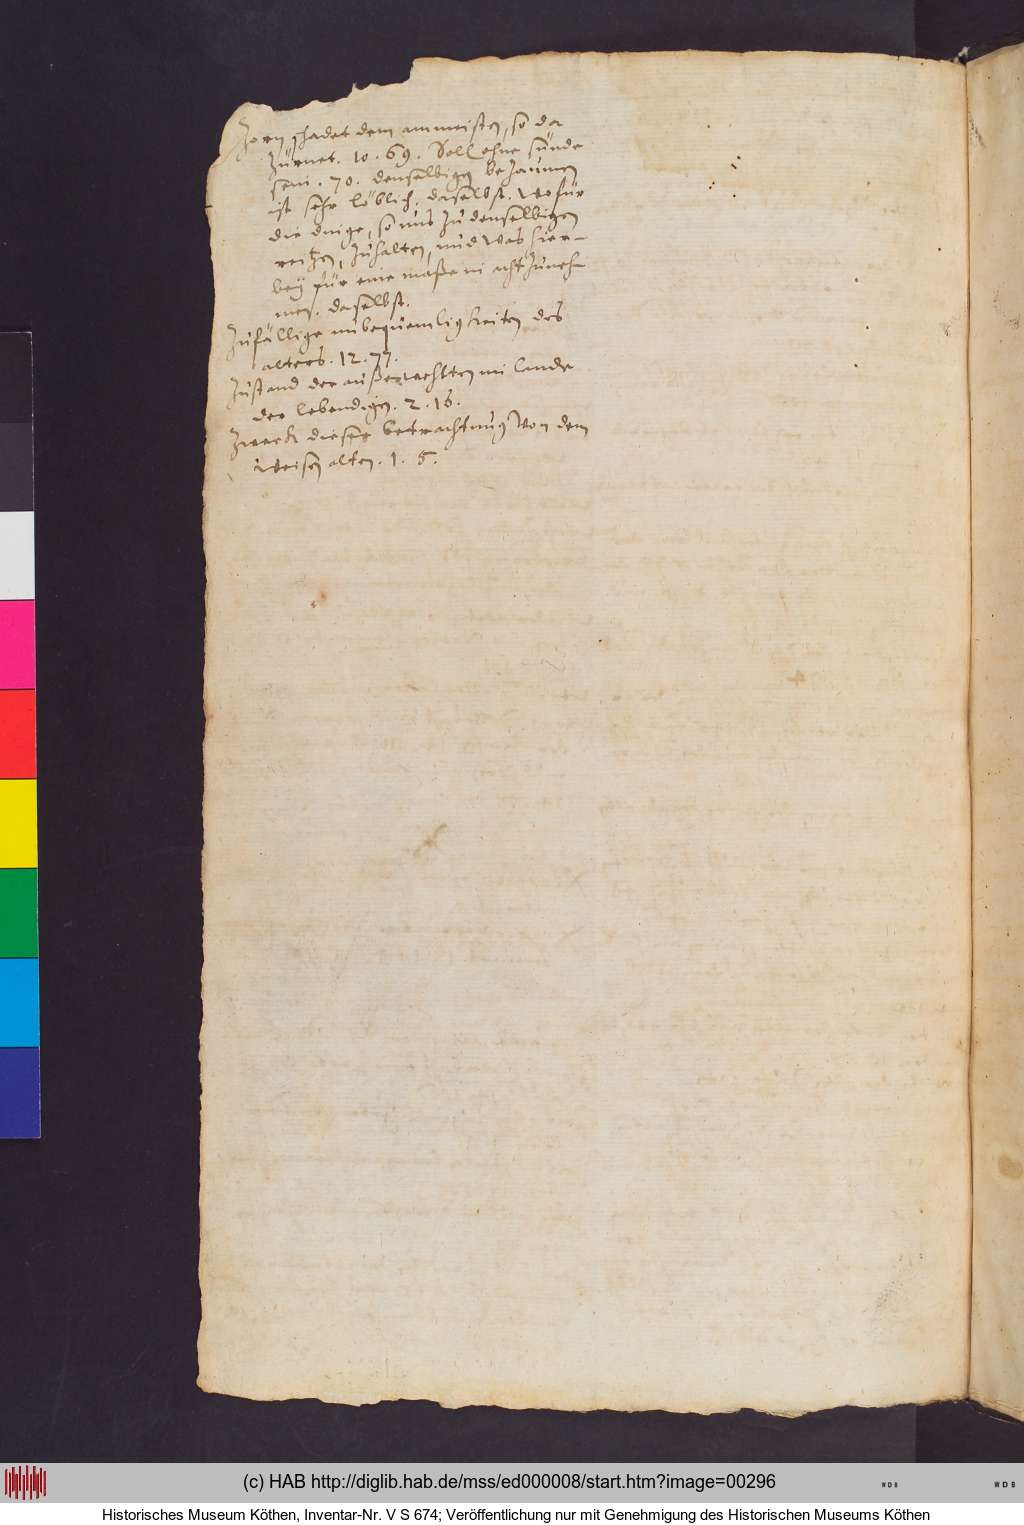 Zorn schadet dem am meisten, so da
Zürnet. 10. 69. Soll ohne sünde
sein. 70. denselbigen bezäumen
ist sehr löblich. daselbst. wofür
die dinge, so uns zu denselbigen
reitzen, zuhalten, und was hier-
bey für eine maße in acht zuneh-
men. daselbst.
Zufällige unbequemligkeiten des
alters. 12. 77.
Zustand der außerwehlten im lande
der lebendigen. 2. 16.
Zweck dieser betrachtung von dem
Weisen alten. 1. 5.
(c) HAB http://diglib.hab.de/mss/ed000008/start.htm?image=00296
WDB
WDB
Historisches Museum Köthen, Inventar-Nr. V S 674; Veröffentlichung nur mit Genehmigung des Historischen Museums Köthen